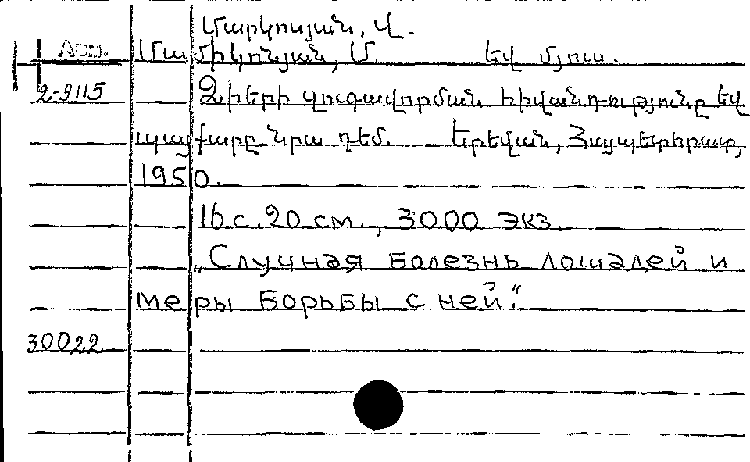 Մարկոսյան, Վ.
Арм. Մամիկոնյան, Մ. եվ մյուս.
2-9115 Ձիերի զուգավորման հիվանդությունը եվ
պայքարը նրա դեմ. Երեվան, Հայպետհրատ,
1950.
16 с. 20 см., 3000 экз.
„Случная болезнь лошадей и
меры борьбы с ней".
30022